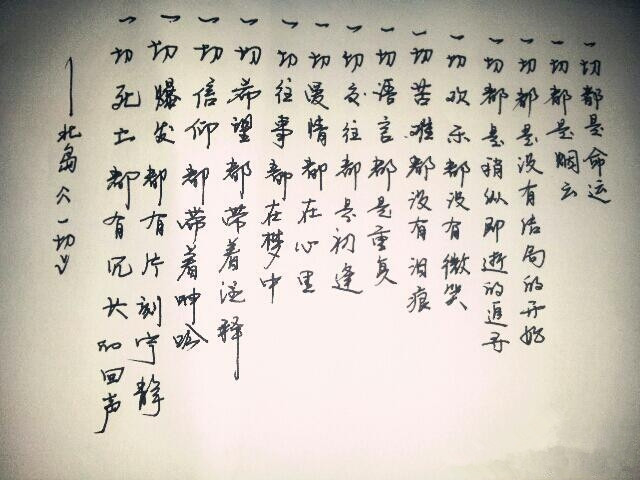 一切都是命运
一切都是烟云
一切都是没有结局的开始
一切都是稍纵即逝的追寻
一切欢乐都没有微笑
一切苦难都没有泪痕
一切语言都是重复
一切交往都是初逢
一切爱情都在心里
一切往事都在梦中
一切希望都带着注释
一切信仰都带着呻吟
一切爆发都有片刻宁静
一切死亡都有冗长的回声
——北岛《一切》